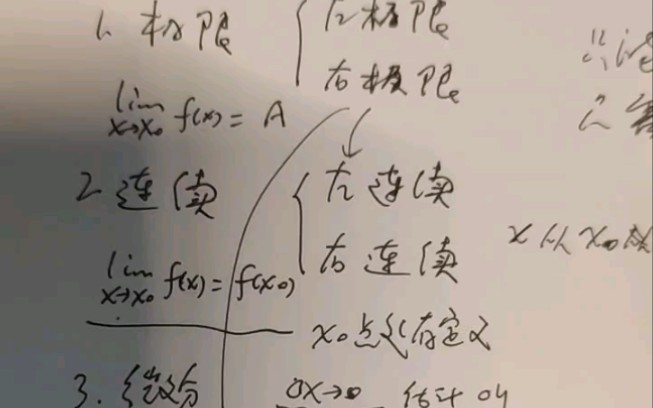 1. 极限
左极限
右极限
lim x→x₀ f(x) = A
2 连续
左连续
右连续
lim x→x₀ f(x) = f(x₀)
x 从 x₀
x₀点处有定义
3. 微分
Δx→0 估计 Δy